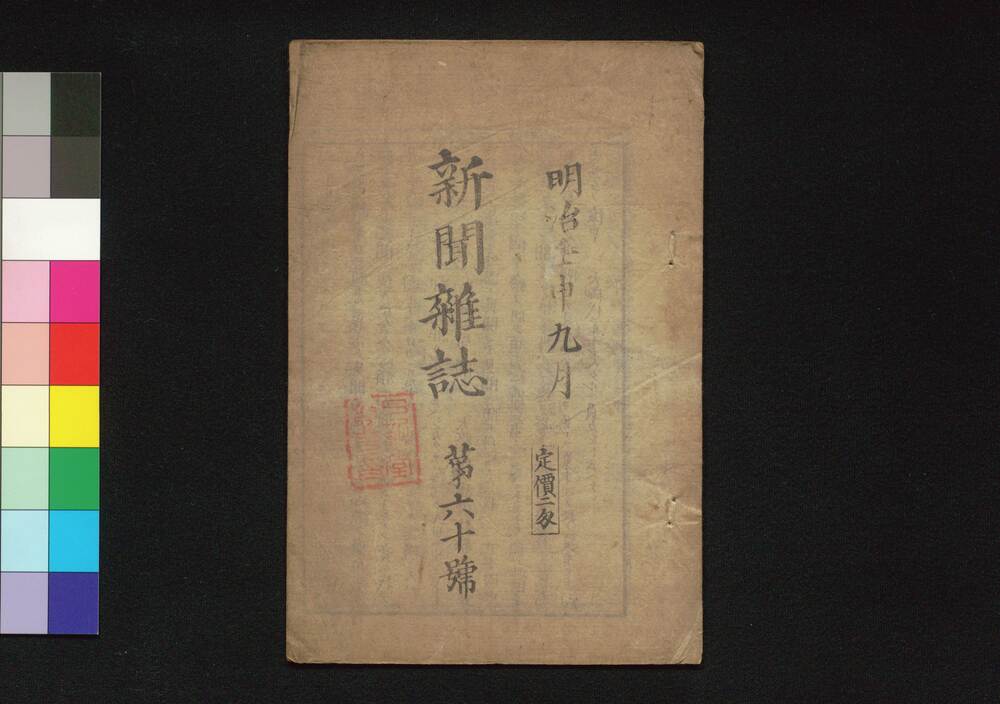 明治壬申九月
定價二匁
新聞雜誌
第六十號